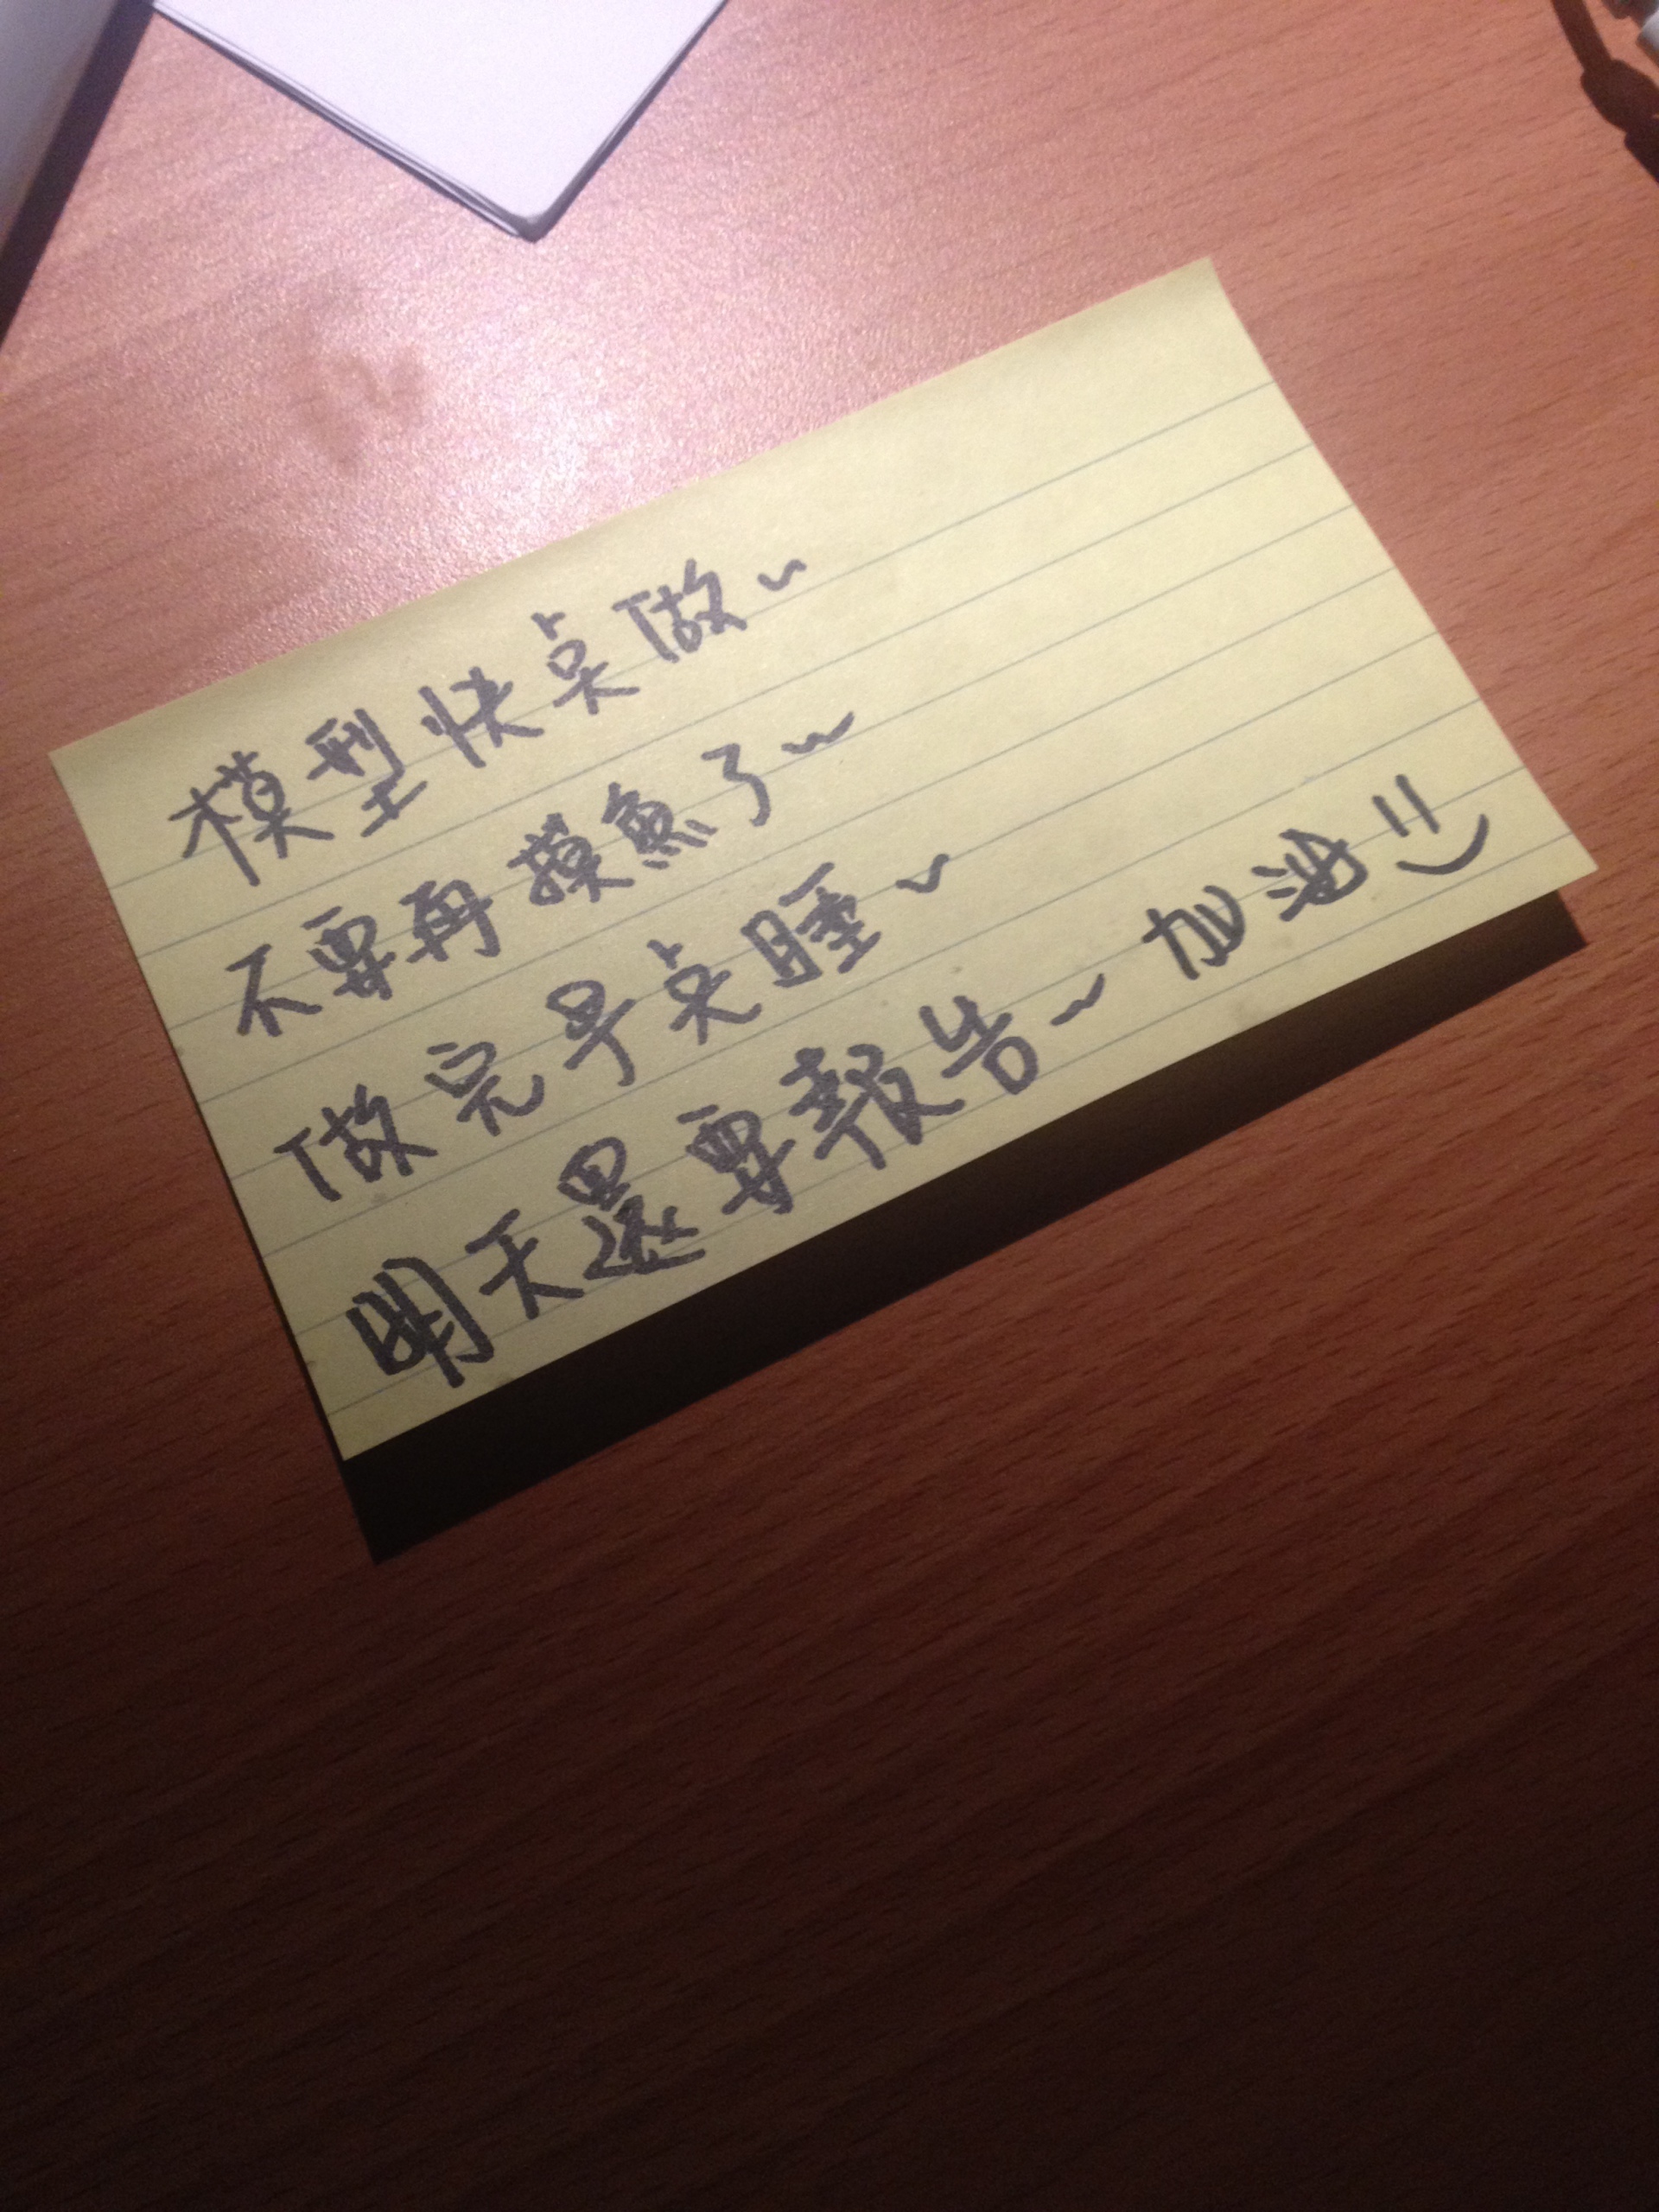 模型快点做~
不要再摸魚了~
做完早点睡~
明天還要報告~ 加油 =)